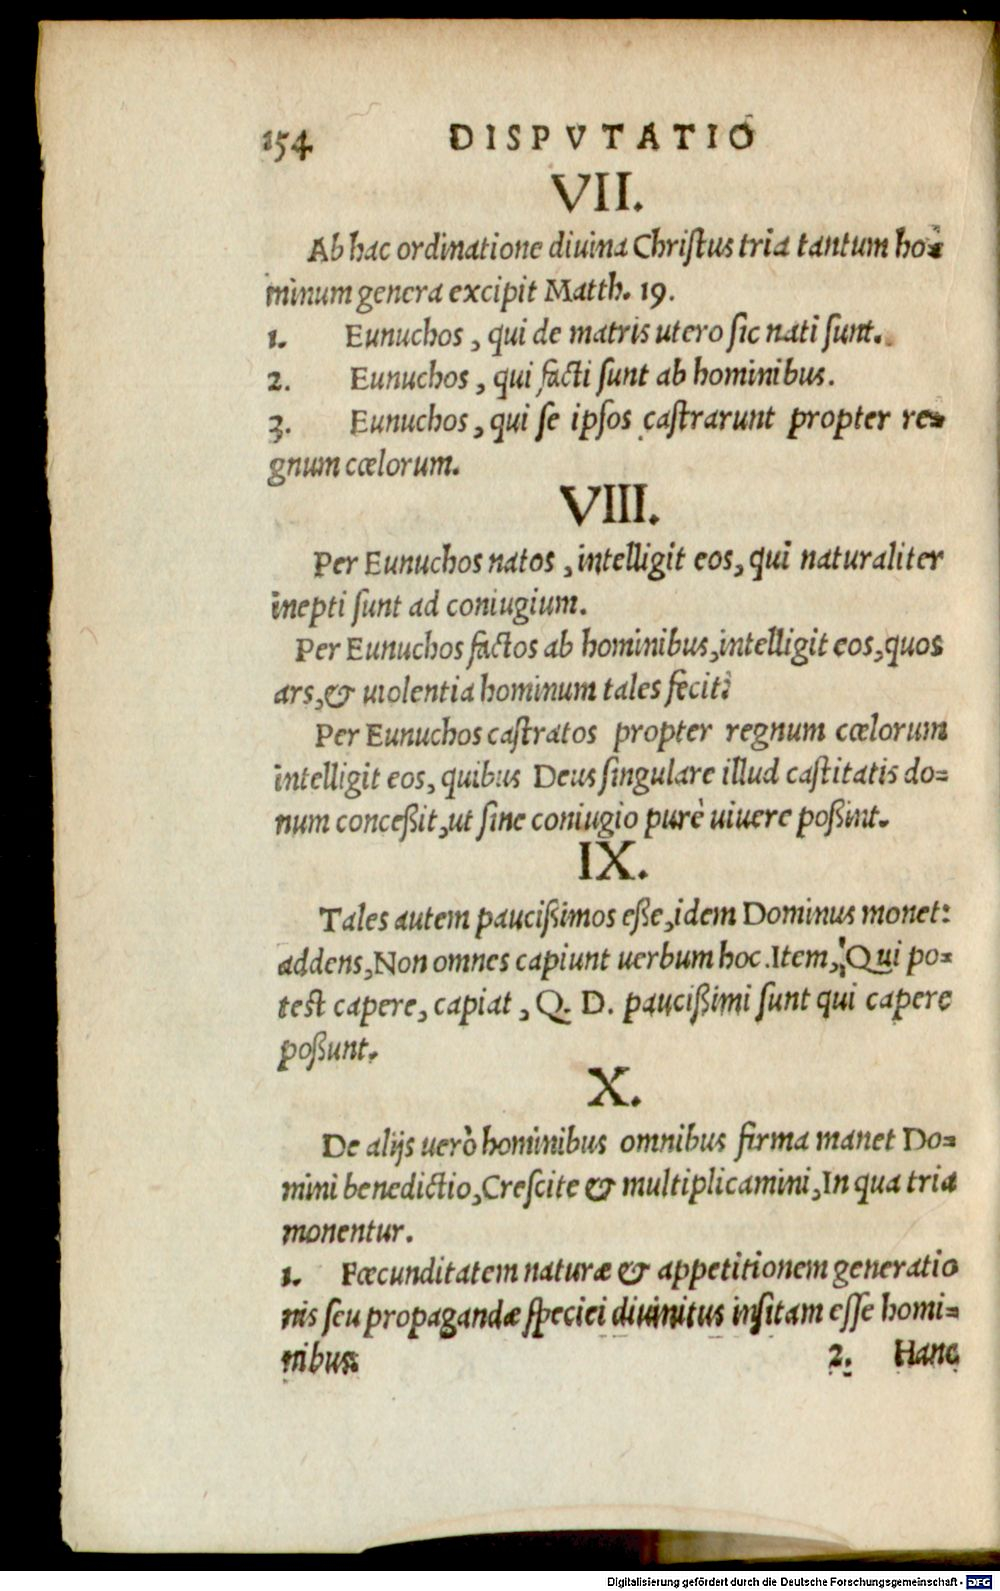 154 DISPVTATIO
VII.
Ab hac ordinatione diuina Christus tria tantum ho-
minum genera excipit Matth. 19.
1. Eunuchos, qui de matris utero sic nati sunt.
2. Eunuchos, qui facti sunt ab hominibus.
3. Eunuchos, qui se ipsos castrarunt propter re-
gnum cœlorum.
VIII.
Per Eunuchos natos, intelligit eos, qui naturaliter
inepti sunt ad coniugium.
Per Eunuchos factos ab hominibus, intelligit eos, quos
ars, & uiolentia hominum tales fecit:
Per Eunuchos castratos propter regnum cœlorum
intelligit eos, quibus Deus singulare illud castitatis do-
num conceßit, ut sine coniugio purè uiuere poßint.
IX.
Tales autem paucißimos eße, idem Dominus monet:
addens, Non omnes capiunt uerbum hoc. Item, Qui po-
test capere, capiat, Q. D. paucißimi sunt qui capere
poßunt.
X.
De alijs uerò hominibus omnibus firma manet Do-
mini benedictio, Crescite & multiplicamini, In qua tria
monentur.
1. Fœcunditatem naturæ & appetitionem generatio
nis seu propagandæ speciei diuinitus insitam esse homi-
nibus. 2. Hanc
Digitalisierung gefördert durch die Deutsche Forschungsgemeinschaft - DFG